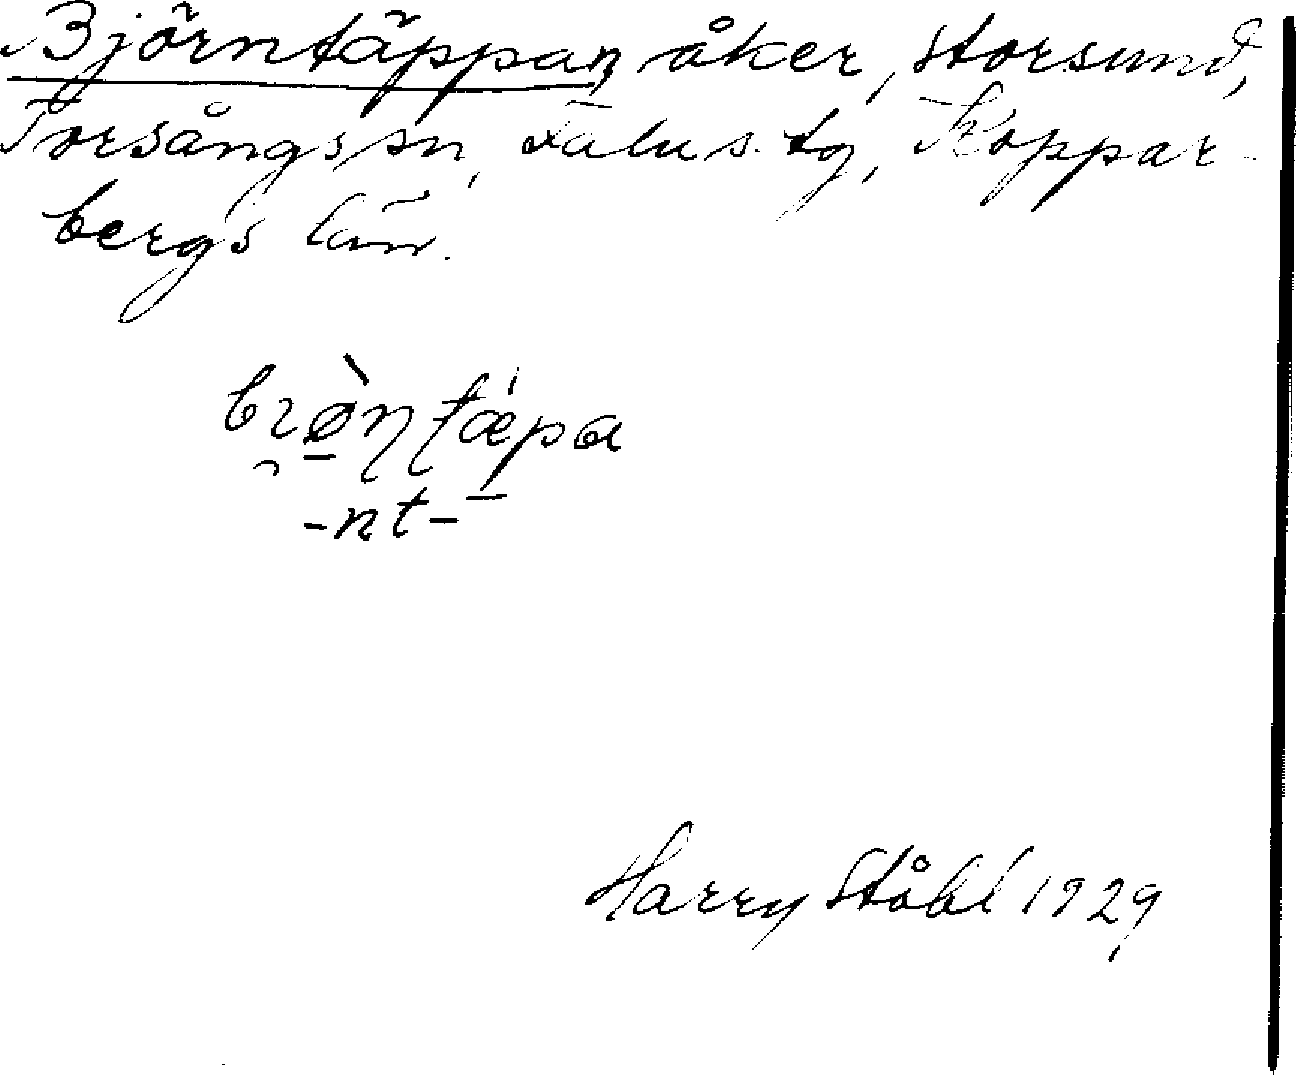 Björntäppan, åker, Storsund,
Torsångs sn, Falu s. tg, Koppar-
bergs län.
-nt-
Harry Ståhl 1929